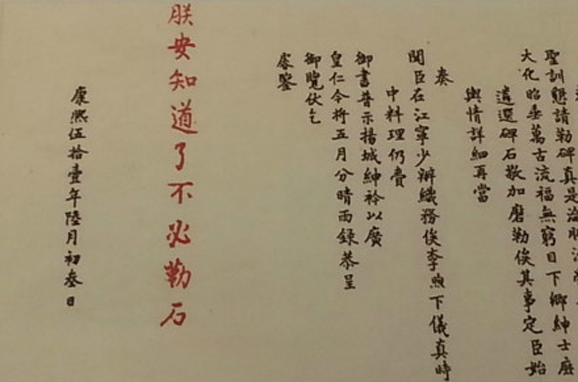 聖訓懇請勒碑真是
大化昭垂萬古流福無窮目下鄉紳士庶
遴選碑石敬加磨勒俟其事定臣始
輿情詳細再當
奏
聞臣在江寧少辦織務俟李煦下儀真時
中料理仍賫
御書普示揚城紳衿以廣
皇仁今將五月分晴雨錄恭呈
御覽伏乞
睿鑒
朕安知道了不必勒石
康熙伍拾壹年陸月初叁日